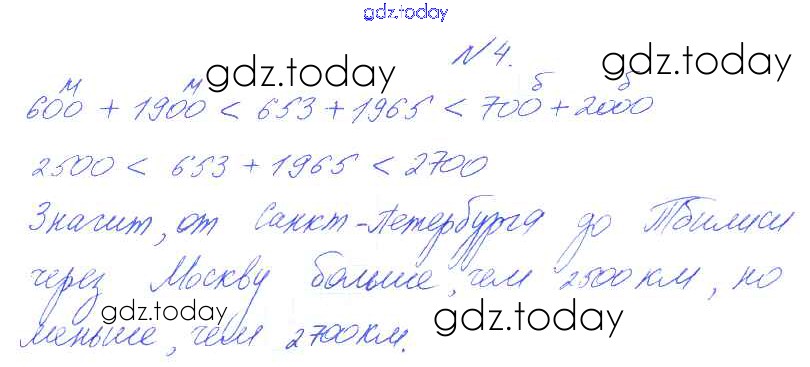 gdz.today
№4.
gdz.today gdz.today
м м б б
600 + 1900 < 653 + 1965 < 700 + 2000
2500 < 653 + 1965 < 2700
Значит, от Санкт-Петербурга до Тбилиси
через Москву больше, чем 2500 км, но
gdz.today gdz.today
меньше, чем 2700 км.